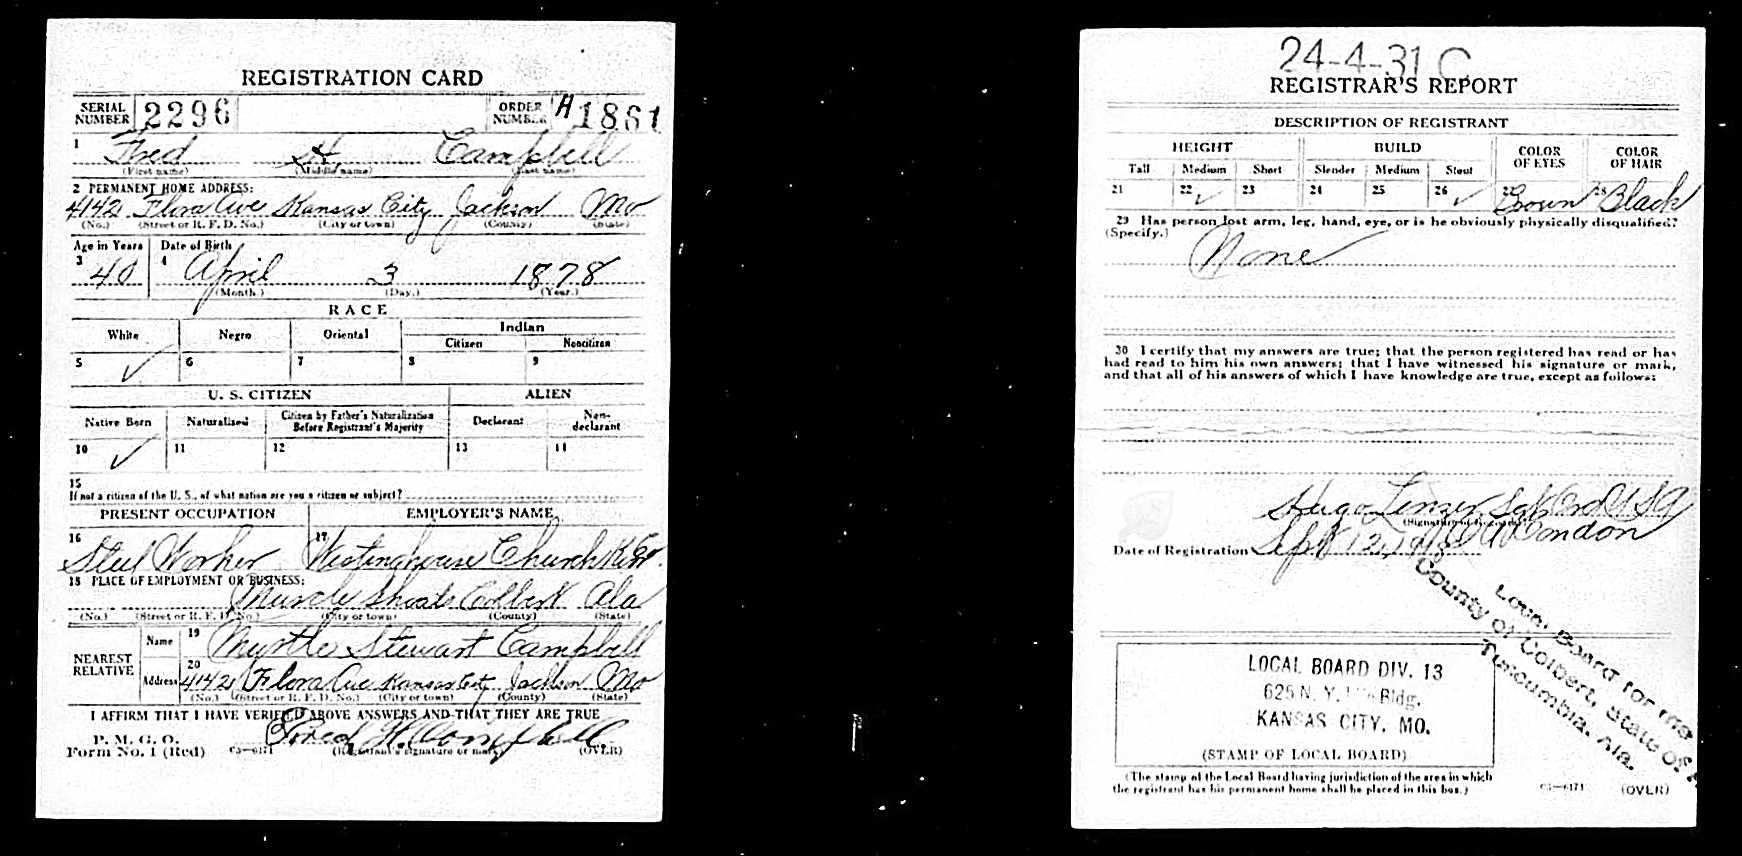 REGISTRATION CARD
SERIAL NUMBER 2296 ORDER NUMBER A 1861
1 Fred H. Campbell
(First name) (Middle name) (Last name)
2 PERMANENT HOME ADDRESS:
4142 Flora Ave Kansas City Jackson Mo
(No.) (Street or R. F. D. No.) (City or town) (County) (State)
Age in Years Date of Birth
3 40 4 April 3 1878
(Month.) (Day.) (Year.)
RACE
White Negro Oriental Indian
Citizen Noncitizen
5 ✓ 6 7 8 9
U. S. CITIZEN ALIEN
Native Born Naturalized Citizen by Father's Naturalization Before Registrant's Majority Declarant Non-declarant
10 ✓ 11 12 13 14
15
If not a citizen of the U. S., of what nation are you a citizen or subject?
PRESENT OCCUPATION EMPLOYER'S NAME
16 Steel Worker 17 Westinghouse Church Kerr
18 PLACE OF EMPLOYMENT OR BUSINESS:
Muscle Shoals Colbert Ala
(No.) (Street or R. F. D. No.) (City or town) (County) (State)
NEAREST RELATIVE
Name 19 Myrtle Stewart Campbell
Address 20 4142 Flora Ave Kansas City Jackson Mo
(No.) (Street or R. F. D. No.) (City or town) (County) (State)
I AFFIRM THAT I HAVE VERIFIED ABOVE ANSWERS AND THAT THEY ARE TRUE
P. M. G. O.
Form No. 1 (Red) 03—6171 Fred H. Campbell
(Registrant's signature or mark) (OVER)
24-4-31 C
REGISTRAR'S REPORT
DESCRIPTION OF REGISTRANT
HEIGHT BUILD COLOR OF EYES COLOR OF HAIR
Tall Medium Short Slender Medium Stout
21 22 ✓ 23 24 25 26 ✓ 27 Brown 28 Black
29 Has person lost arm, leg, hand, eye, or is he obviously physically disqualified?
(Specify.) None
30 I certify that my answers are true; that the person registered has read or has
had read to him his own answers; that I have witnessed his signature or mark,
and that all of his answers of which I have knowledge are true, except as follows:
Hugo
(Signature of Registrar)
Date of Registration Sept 12, 1918
Local Board for the
County of Colbert, State of
Tuscumbia, Ala.
LOCAL BOARD DIV. 13
625 N. Y. Bldg.
KANSAS CITY, MO.
(STAMP OF LOCAL BOARD)
(The stamp of the Local Board having jurisdiction of the area in which
the registrant has his permanent home shall be placed in this box.)
03—6171 (OVER)